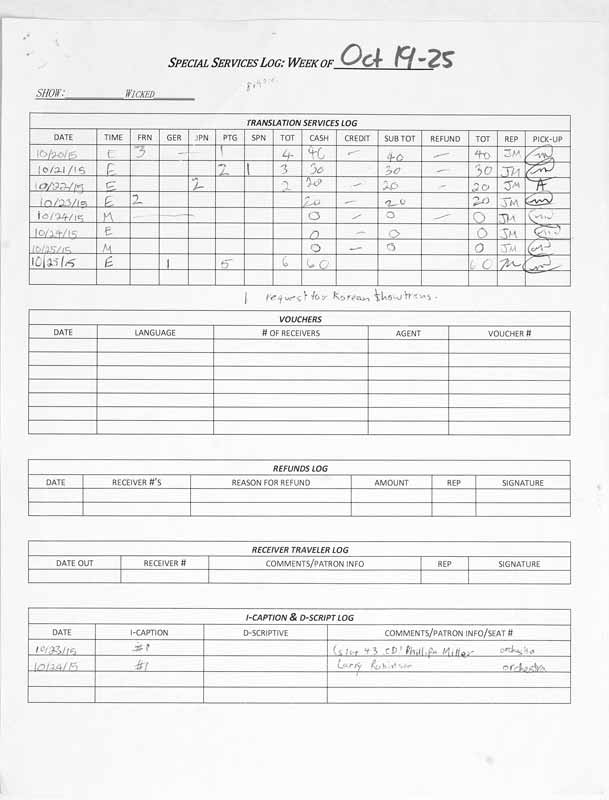 SPECIAL SERVICES LOG: WEEK OF Oct 19-25
SHOW: WICKED
TRANSLATION SERVICES LOG
DATE TIME FRN GER JPN PTG SPN TOT CASH CREDIT SUB TOT REFUND TOT REP PICK-UP
10/20/15 E 3 — 1 4 40 — 40 — 40 JM
10/21/15 E 2 1 3 30 — 30 — 30 JM
10/22/15 E 2 2 20 — 20 — 20 JM
10/23/15 E 2 20 — 20 20 JM
10/24/15 M — 0 — 0 — 0 JM
10/24/15 E 0 — 0 0 JM
10/25/15 M 0 — 0 0 JM
10/25/15 E 1 5 6 60 60 JM
1 request for Korean Showtrans.
VOUCHERS
DATE LANGUAGE # OF RECEIVERS AGENT VOUCHER #
REFUNDS LOG
DATE RECEIVER #'S REASON FOR REFUND AMOUNT REP SIGNATURE
RECEIVER TRAVELER LOG
DATE OUT RECEIVER # COMMENTS/PATRON INFO REP SIGNATURE
I-CAPTION & D-SCRIPT LOG
DATE I-CAPTION D-SCRIPTIVE COMMENTS/PATRON INFO/SEAT #
10/23/15 #9 Phillipa Miller orchestra
10/24/15 #1 Larry Robinson orchestra